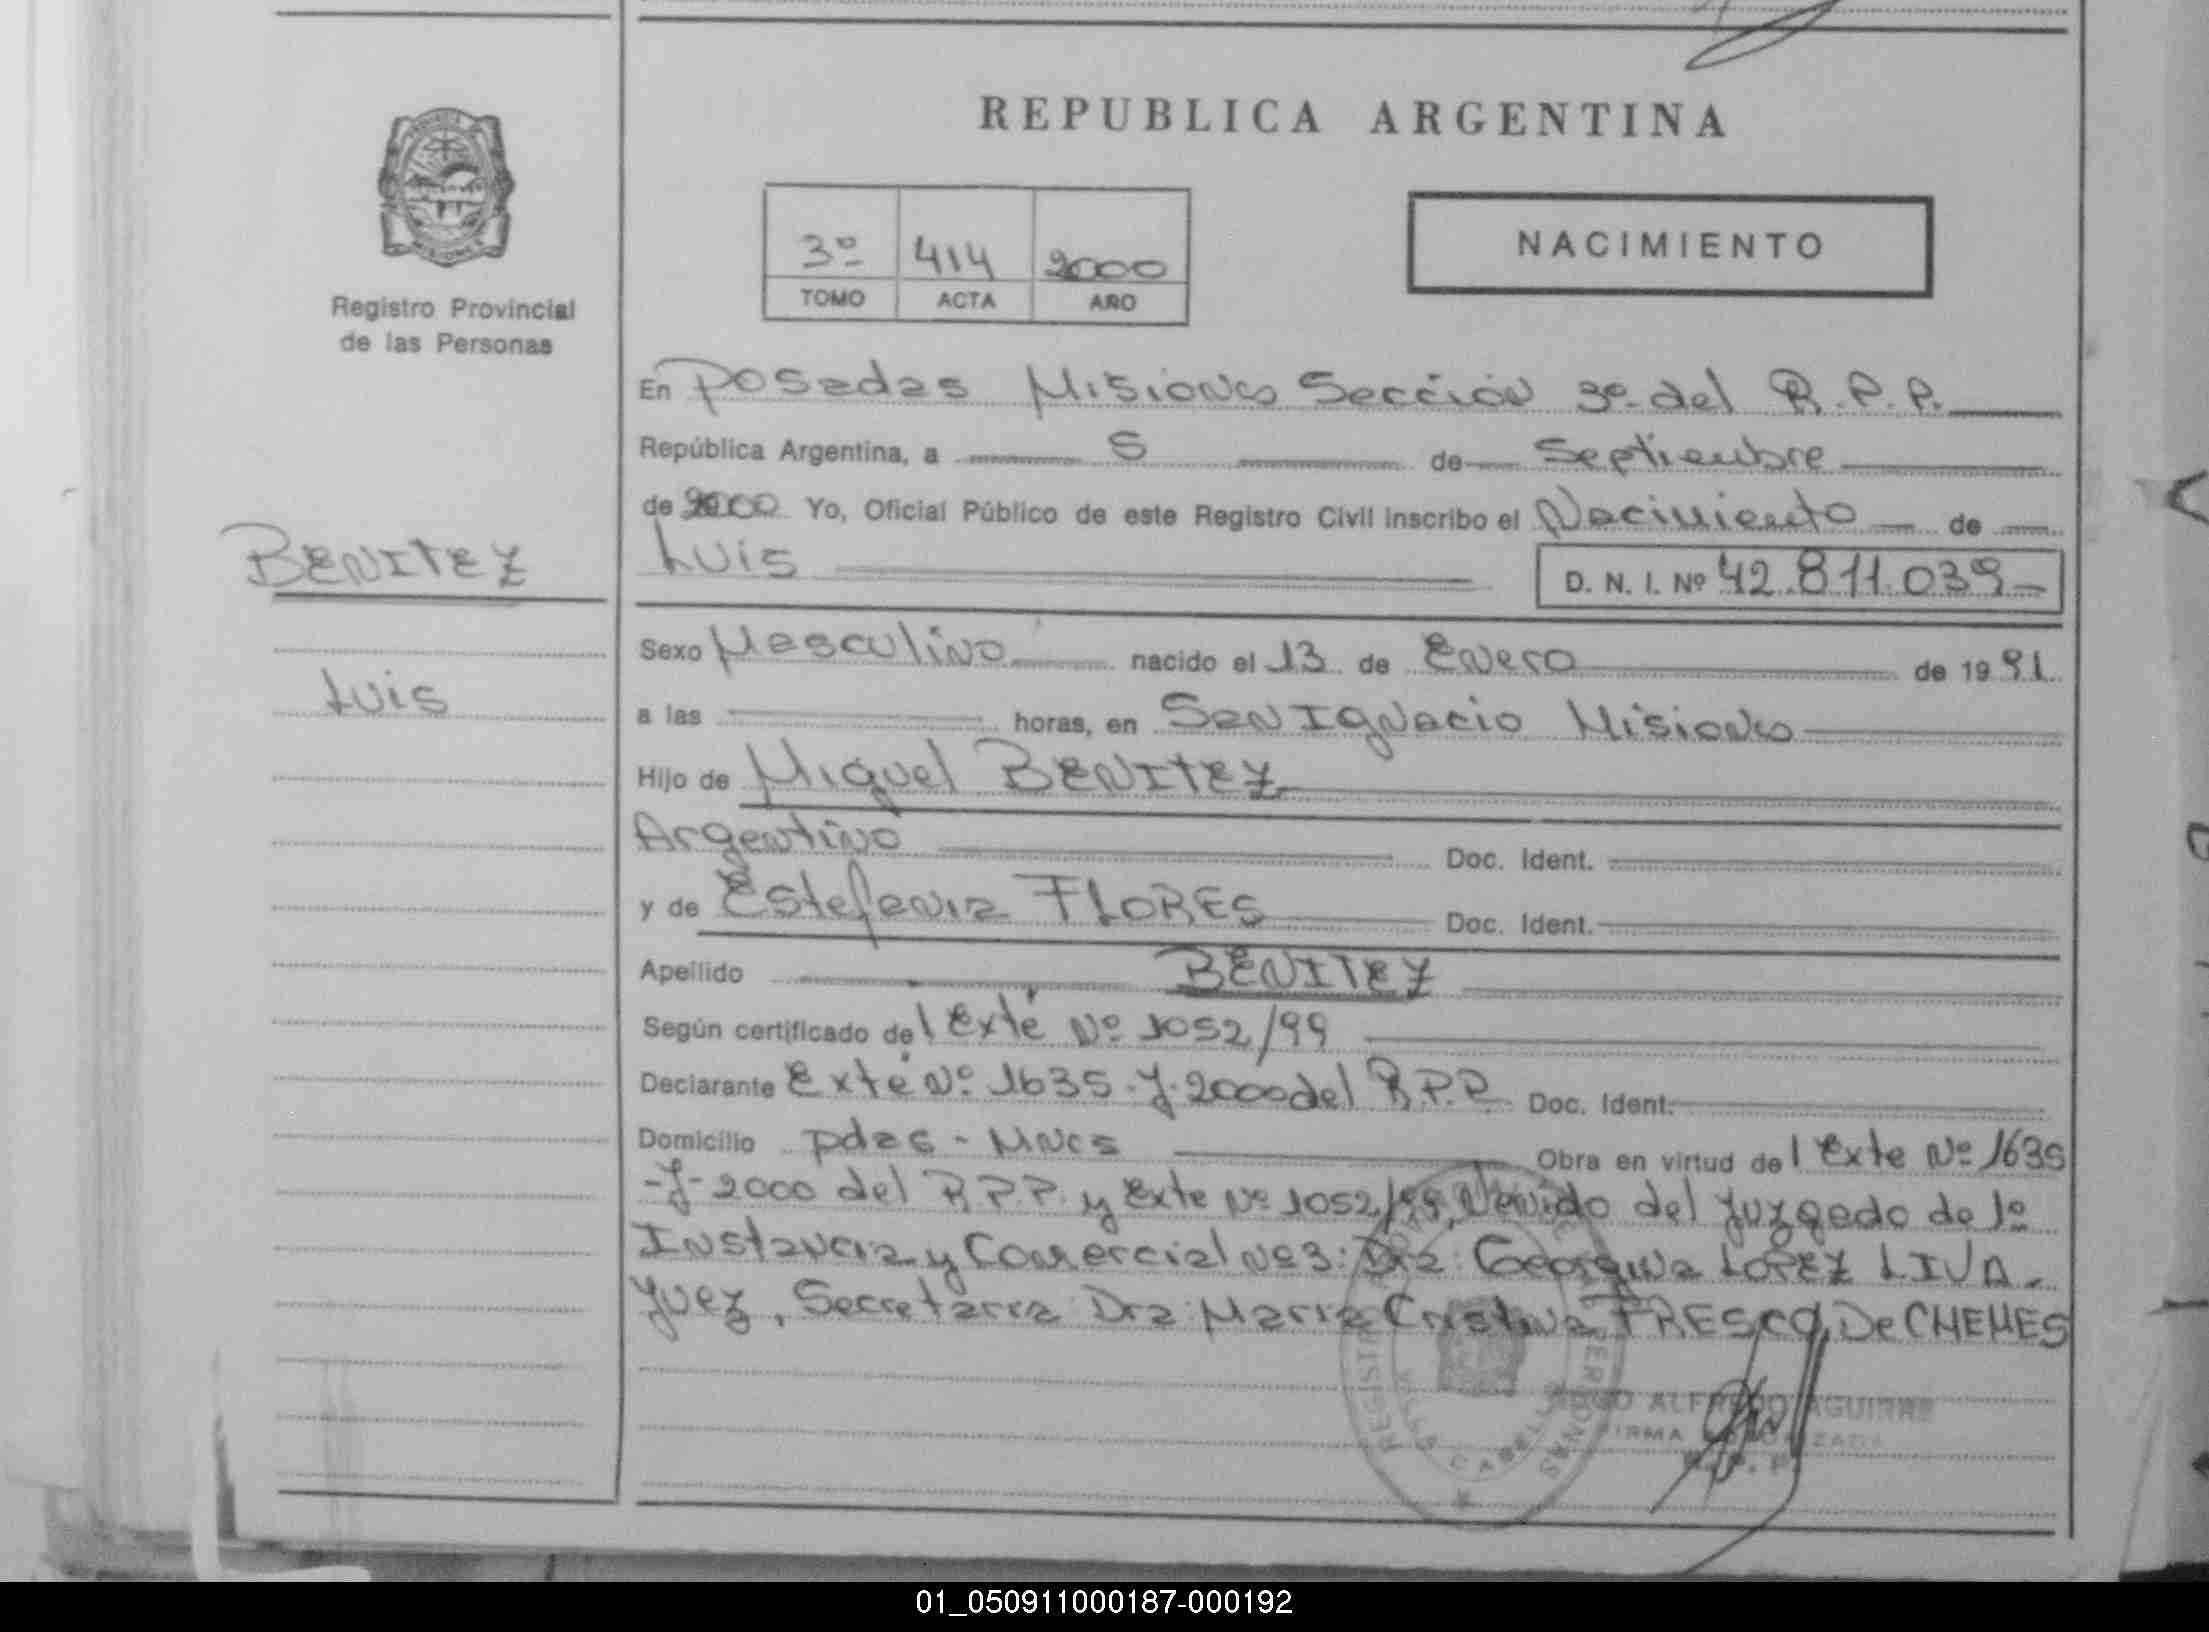 REPUBLICA ARGENTINA
Registro Provincial
de las Personas
3º 414 2000
TOMO ACTA AÑO
NACIMIENTO
En Posadas Misiones Sección 3º del R.P.P.
República Argentina, a 5 de Septiembre
de 2000 Yo, Oficial Público de este Registro Civil inscribo el Nacimiento de
BENITEZ
Luis
Luis D. N. I. Nº 42.811.039
Sexo Masculino nacido el 13 de Enero de 1991
a las horas, en San Ignacio Misiones
Hijo de Miguel BENITEZ
Argentino Doc. Ident.
y de Estefania FLORES Doc. Ident.
Apellido BENITEZ
Según certificado del Exte Nº 1052/99
Declarante Exte Nº 1635-J-2000 del R.P.P. Doc. Ident.
Domicilio pdas - Mnes Obra en virtud del Exte Nº 1635
-J-2000 del R.P.P. y Exte Nº 1052/99, Venido del Juzgado de 1º
Instancia y Comercial Nº 3: Dra Georgina LOPEZ LIVA.
Juez, Secretaria Dra Maria Cristina FRESCO De CHEMES
ALFREDO AGUIRRE
01_050911000187-000192